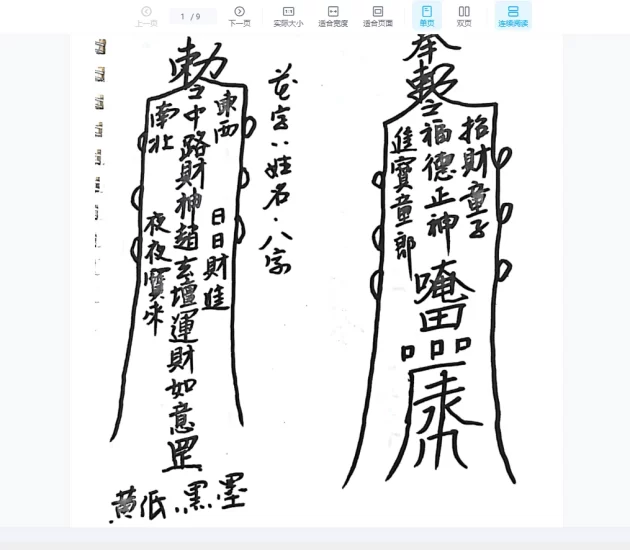 上一页
1 / 9
下一页
实际大小
适合宽度
适合页面
单页
双页
连续阅读
勅
東西
南北
中路財神趙玄壇運財如意罡
日日財進
夜夜寶來
姓名.八字
黄低..黑墨
奉
勅
招財童子
福德正神
進寶童郎
唵
田
口口口